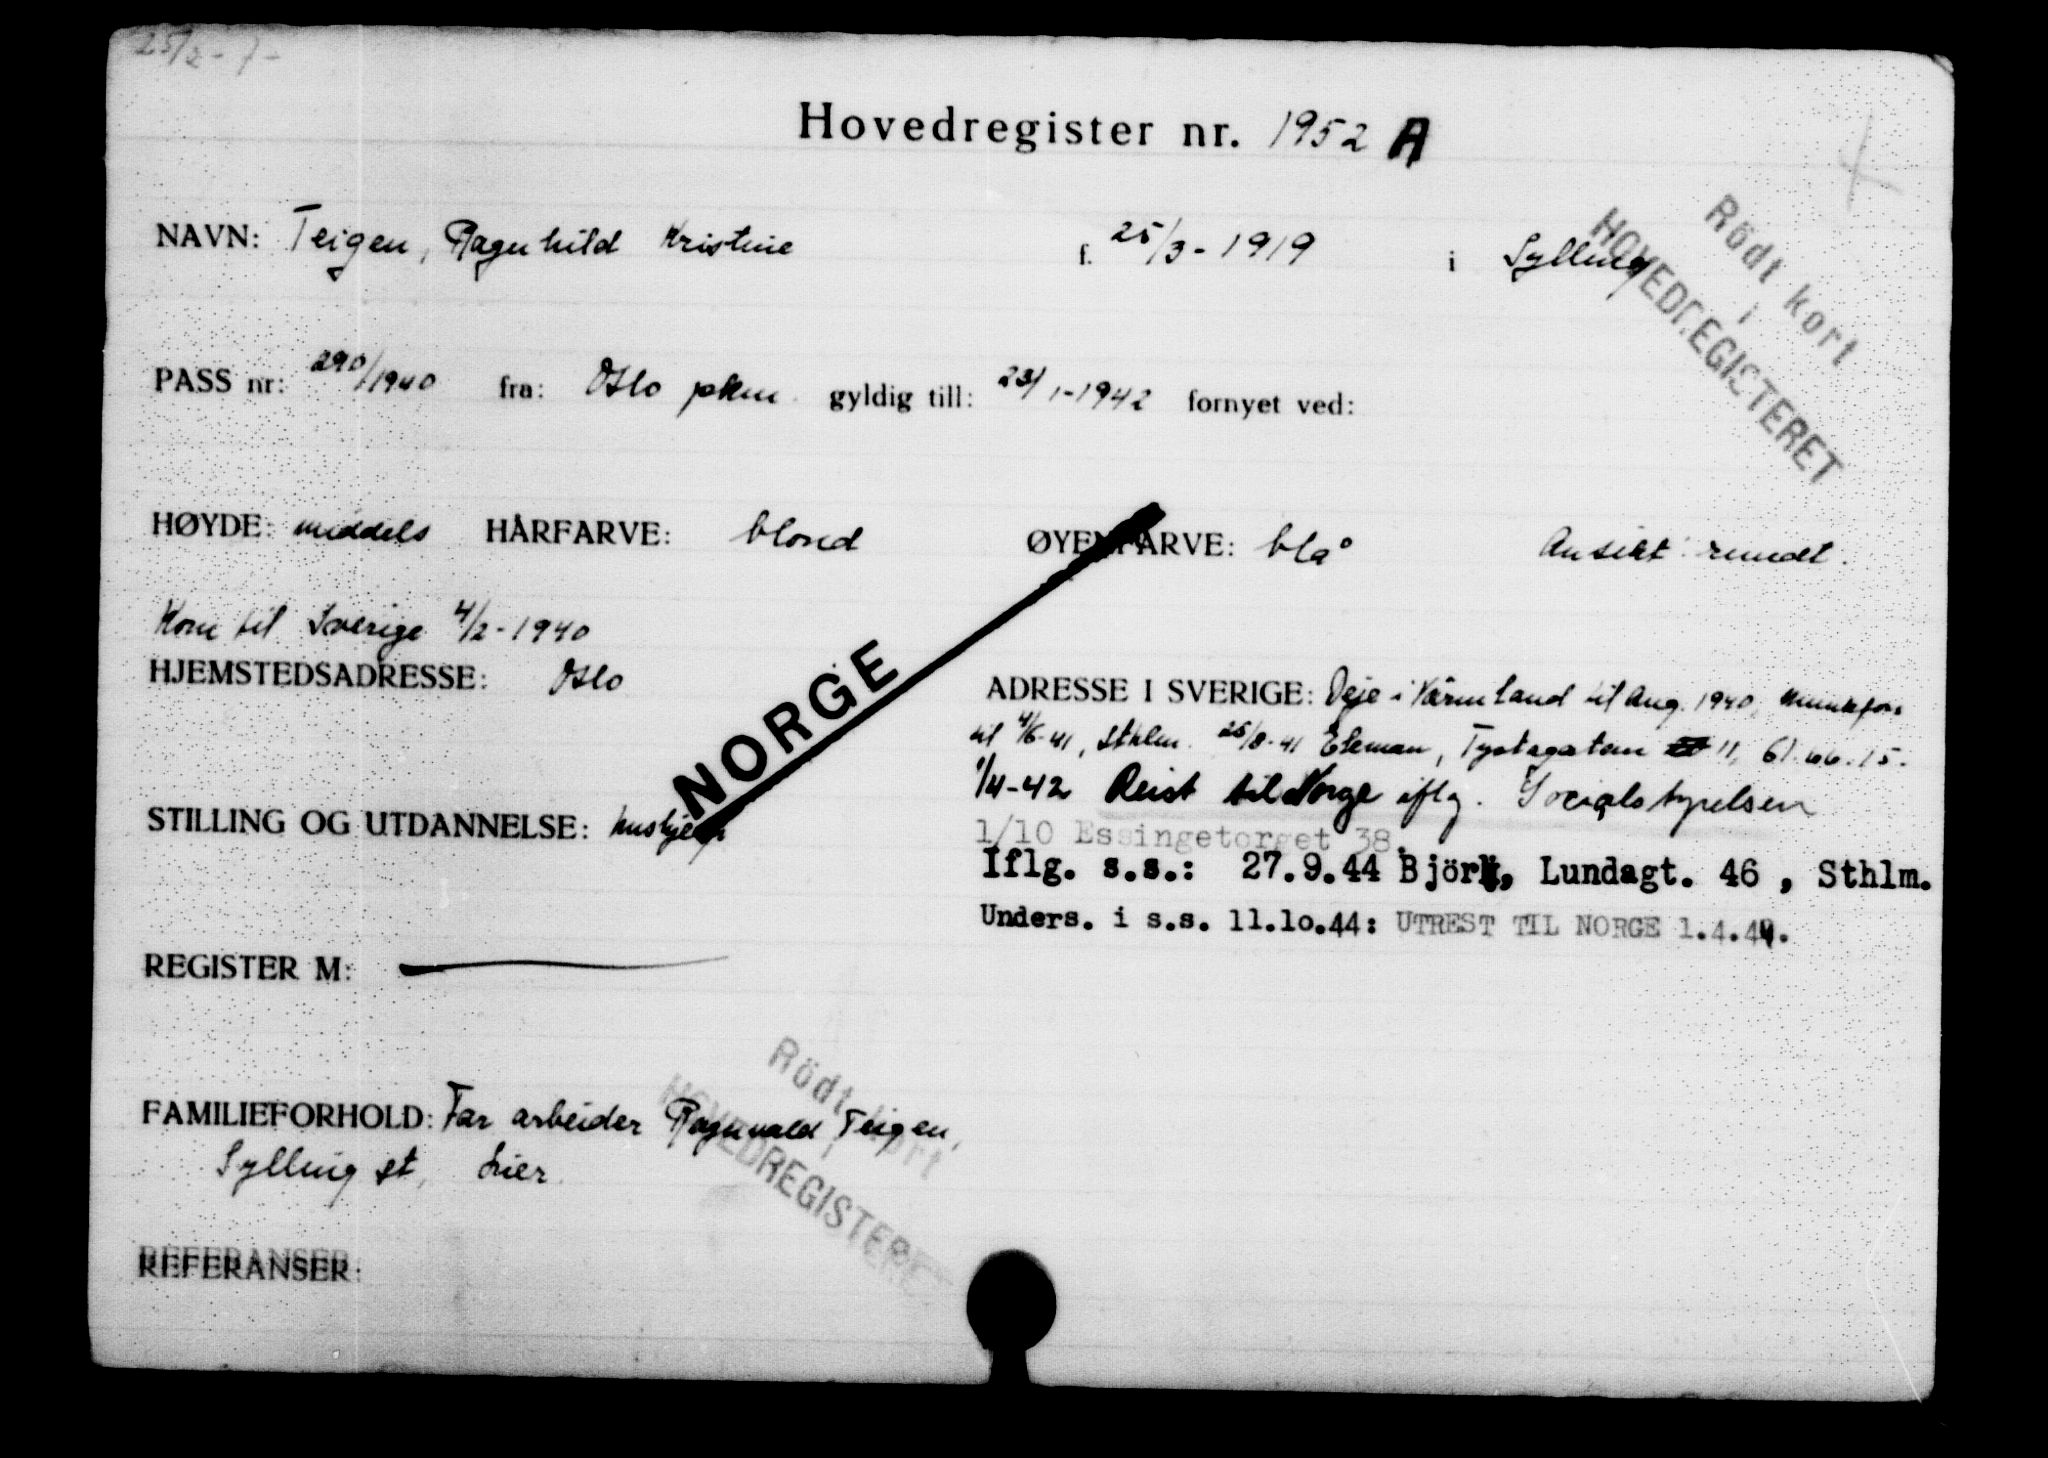 25/2 - 7 -
Hovedregister nr. 1952 A
Rödt kort
i
HOVEDREGISTERET
NAVN: Teigen, Ragnhild Kristine f. 25/3 - 1919 i Sylling
PASS nr: 290/1940 fra: Oslo pkm. gyldig till: 23/1-1942 fornyet ved:
HØYDE: middels HÅRFARVE: blond ØYENFARVE: blå Ansikt: rundt.
Kom til Sverige 4/2 - 1940
HJEMSTEDSADRESSE: Oslo
NORGE
ADRESSE I SVERIGE: Deje i Värmland til Aug. 1940, Munkfors
til 4/6-41, Sthlm. 25/8-41 Ekman, Tystagatan 11, 61.66.15.
1/4-42 Reist til Norge iflg. Socialstyrelsen
STILLING OG UTDANNELSE: hushjelp
1/10 Essingetorget 38.
Iflg. s.s.: 27.9.44 Björk, Lundagt. 46 , Sthlm.
Unders. i s.s. 11.10.44: UTREST TIL NORGE 1.4.44.
REGISTER M:
Rödt kort
i
HOVEDREGISTERET
FAMILIEFORHOLD: Far arbeider Ragnvald Teigen,
Sylling st, Lier.
REFERANSER: